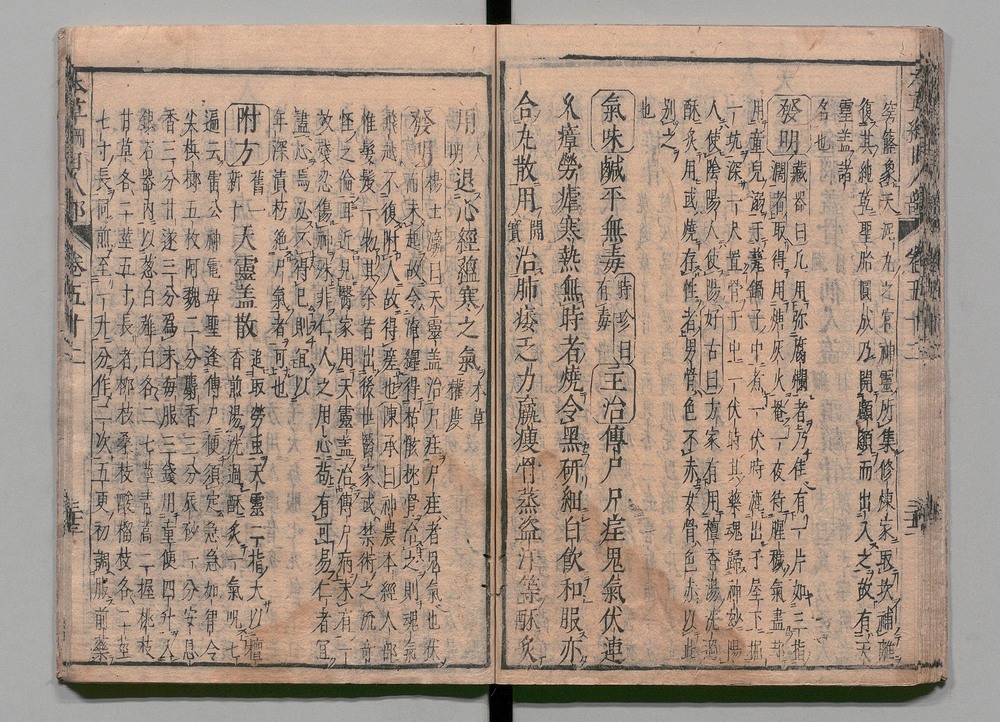 旁羅象天泥丸之宮神靈所集修煉家取坎補離
復其純乾聖胎圓成乃開顱顖而出入之故有天
靈蓋諸
名也
發明藏器曰凡用彌腐爛者乃佳有一片如三指
闊者取得用煻灰火罨一夜待腥穢氣盡却
用童兒溺于瓷鍋子中煮一伏時漉出于屋下掘
一坑深一尺置骨于中一伏時其藥魂歸神妙陽
人使陰陰人使陽好古曰方家有用檀香湯洗過
酥炙用或燒存性者男骨色不赤女骨色赤以此
別之
也
氣味鹹平無毒時珍曰有毒主治傳尸尸疰鬼氣伏連
久瘴勞瘧寒熱無時者燒令黑研細白飲和服亦
合丸散用開寶治肺痿乏力羸瘦骨蒸盜汗等酥炙
用大明退心經蘊寒之氣本草權度
發明楊士瀛曰天靈蓋治尸疰尸疰者鬼氣也伏
而未起故令淹纏得枯骸枕骨治之則魂氣
飛越不復附人故得瘥也陳承曰神農本經人部
惟髮髲一物其餘皆出後世醫家或禁術之流奇
怪之論耳近見醫家用天靈蓋治傳尸病未有一
效殘忍傷神殊非仁人之用心苟有可易仁者宜
盡心焉必不得已則宜以
年深漬朽絕尸氣者可也
附方舊一新十天靈蓋散追取勞蟲天靈一指大以檀
香煎湯洗過酥炙一氣呪七
遍云雷公神電母聖逢傳尸便須定急急如律令
尖檳榔五枚阿魏二分麝香三分辰砂一分安息
香三分甘遂三分爲末每服三錢用童便四升入
銀石器內以葱白薤白各二七莖青蒿二握桃枝
甘草各二莖五寸長者柳枝桑枝酸榴枝各二莖
七寸長同煎至一升分作三次五更初調服前藥
本草綱目人部
卷五十二